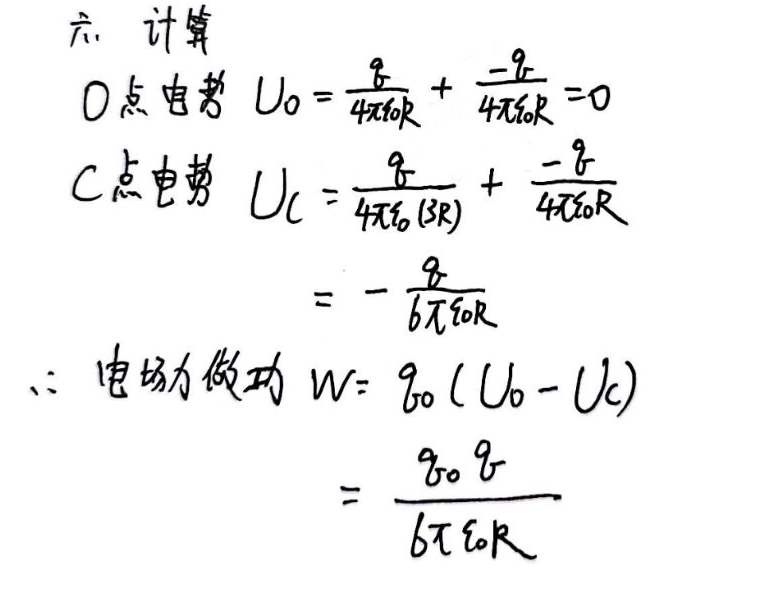 六. 计算
O点电势 U₀ = q/(4πε₀R) + -q/(4πε₀R) = 0
C点电势 U_C = q/(4πε₀(3R)) + -q/(4πε₀R)
= - q/(6πε₀R)
∴ 电场力做功 W = q₀(U₀ - U_C)
= q₀q/(6πε₀R)